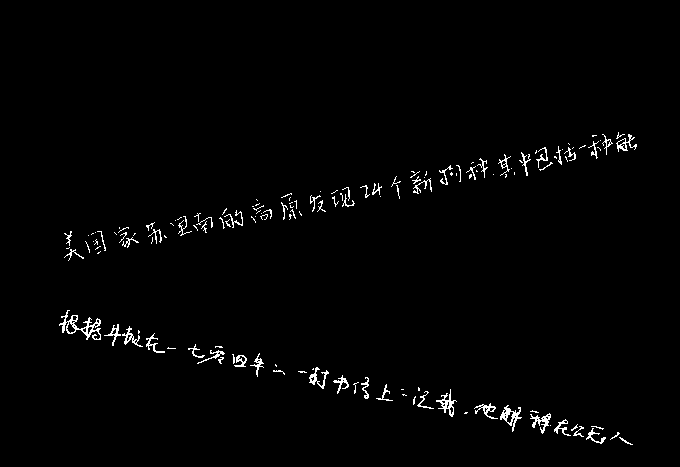 美国家苏里南的高原发现24个新物种.其中包括一种能
根据牛顿在一七零四年之一封书信上之记载.他解释在公元